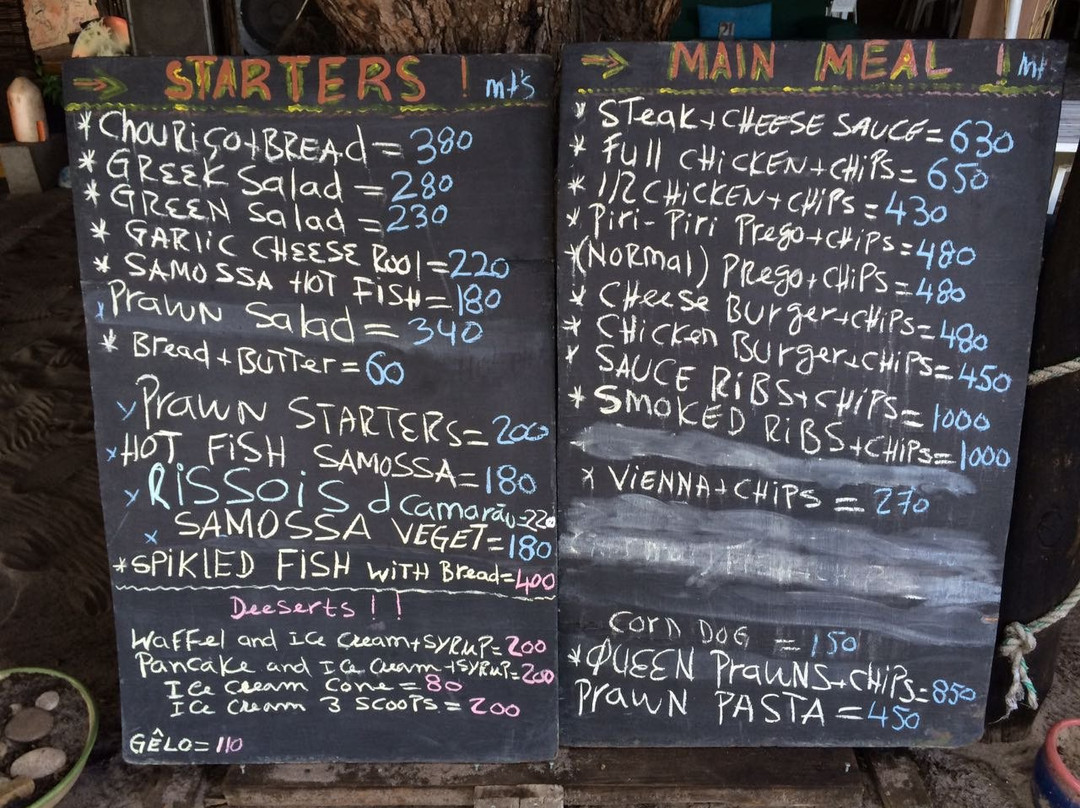 STARTERS ! mt's
* CHOURIÇO + BREAD = 380
* GREEK Salad = 280
* GREEN Salad = 230
* GARLIC CHEESE Rool = 220
* SAMOSSA HOT FISH = 180
x PRAWN Salad = 340
* Bread + BUTTER = 60
x PRAWN STARTERS = 200
x HOT FISH SAMOSSA = 180
x RISSOIS d Camarão = 220
x SAMOSSA VEGET = 180
* SPIKLED FISH WITH Bread = 400
Deeserts !!
Waffel and Ice Cream + SYRUP = 200
Pancake and Ice Cream + SYRUP = 200
Ice Cream Cone = 80
Ice Cream 3 SCOOPS = 200
GÊLO = 110
MAIN MEAL ! mt
* STeak + CHEESE SAUCE = 630
* Full CHICKEN + CHIPS = 650
* 1/2 CHICKEN + CHIPS = 430
* Piri-Piri Prego + CHIPS = 480
* (NORMAL) PRego + CHIPS = 480
* CHeese Burger + CHIPS = 480
* CHicken Burger + CHIPS = 450
* SAUCE RIBS + CHIPS = 1000
* SMOKED RIBS + CHIPS = 1000
* VIENNA + CHIPS = 270
CORN DOG = 150
* QUEEN PRAWNS + CHIPS = 850
PRAWN PASTA = 450